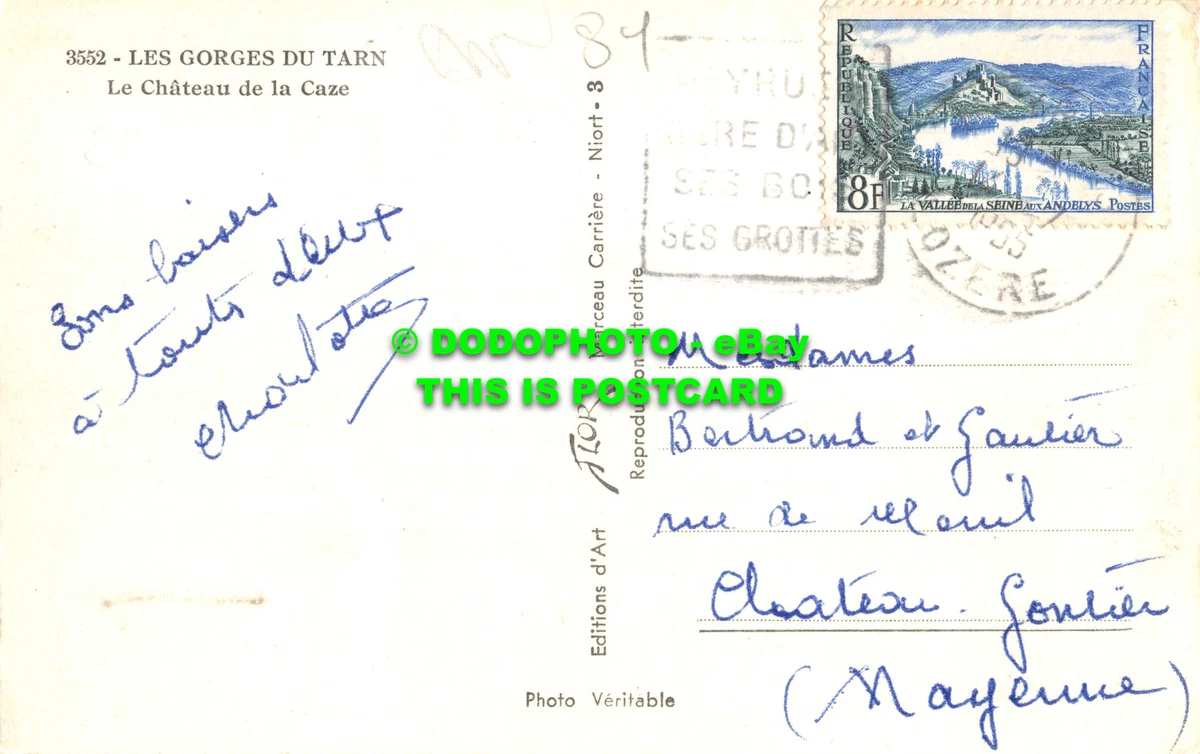 3552 - LES GORGES DU TARN
Le Château de la Caze
Bons baisers
à toutes deux
84
MEYRUEIS
SES GROTTES
LOZERE
REPUBLIQUE FRANCAISE
8F
LA VALLÉE DE LA SEINE AUX ANDELYS POSTES
Editions d'Art FLOR Marceau Carrière - Niort - 3
Reproduction interdite
© DODOPHOTO - eBay
THIS IS POSTCARD
Mesdames
Bertrand et Gautier
rue de
Chateau-Gontier
(Mayenne)
Photo Véritable